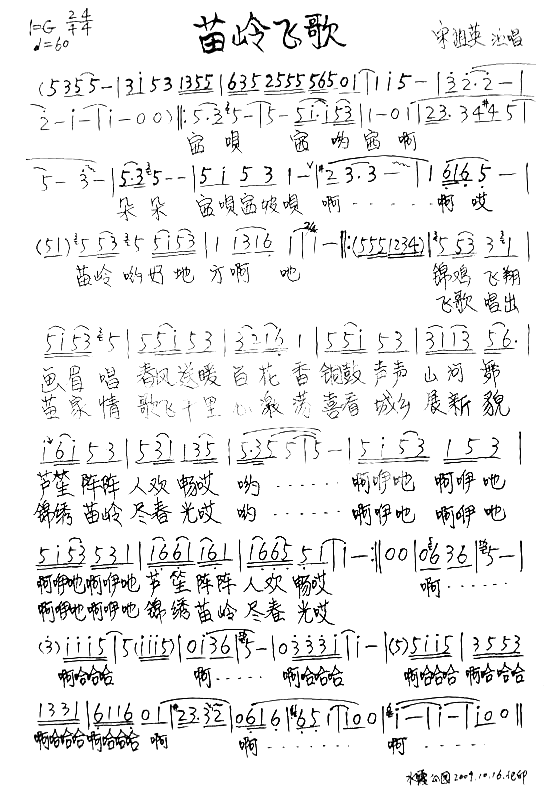 苗岭飞歌
1=G 2/4 4/4
♩=60
宋祖英 演唱
(5 3 5 5 - | 3 i 5 3 1355 | 635 2555 565 01 | 1 i 5 - | 3 2· 2 - |
2 - i - | i - 0 0) ‖: 5·3 5 - | 5 - 5i·i53 | 1 - 0 1 | 23· 34 4 5 |
窑呗 窑哟窑啊
5 - 3 - | 5·3 5 - - | 5 i 5 3 1 - | 2 3·3 - | 1 6165 - |
朵朵 窑呗窑坡呗 啊····· 啊哎
(51) 5 53 5 5i53 | 1 1316 1 | i - ‖: (5551234) | 5 53 3 1 |
苗岭哟好地方啊 吔 锦鸡飞翔
飞歌唱出
5i53 5 | 55i 53 | 3216 1 | 55i 53 | 3113 56· |
画眉唱 春风送暖百花香 铜鼓声声山河舞
苗家情 歌飞十里心激荡 喜看城乡展新貌
i6i 53 | 531 135 | 5·355 5 - | 5 i 53 1 5 3 |
芦笙阵阵人欢畅哎 哟······ 啊咿吔 啊咿吔
锦绣苗岭尽春光哎 哟······ 啊咿吔 啊咿吔
5i53 531 | 1661 161 | 1665 5·1 | i - :‖ 0 0 | 0636 | 5 - |
啊咿吔啊咿吔芦笙阵阵人欢畅哎 啊······
啊咿吔啊咿吔锦绣苗岭尽春光哎
(3) iii5 | 5(iii5) | 0i36 | 5 - | 03331 | i - | (5)5ii5 | 3553 |
啊哈哈哈 啊····· 啊哈哈哈 啊哈哈哈 啊哈哈哈
1331 | 6116 01 | 23·32 | 0616 | 65 1 | i00 | i - | i - | i00 ‖
啊哈哈哈 啊哈哈哈 啊 啊····· 啊·····
水霞公园2009.10.16.记印